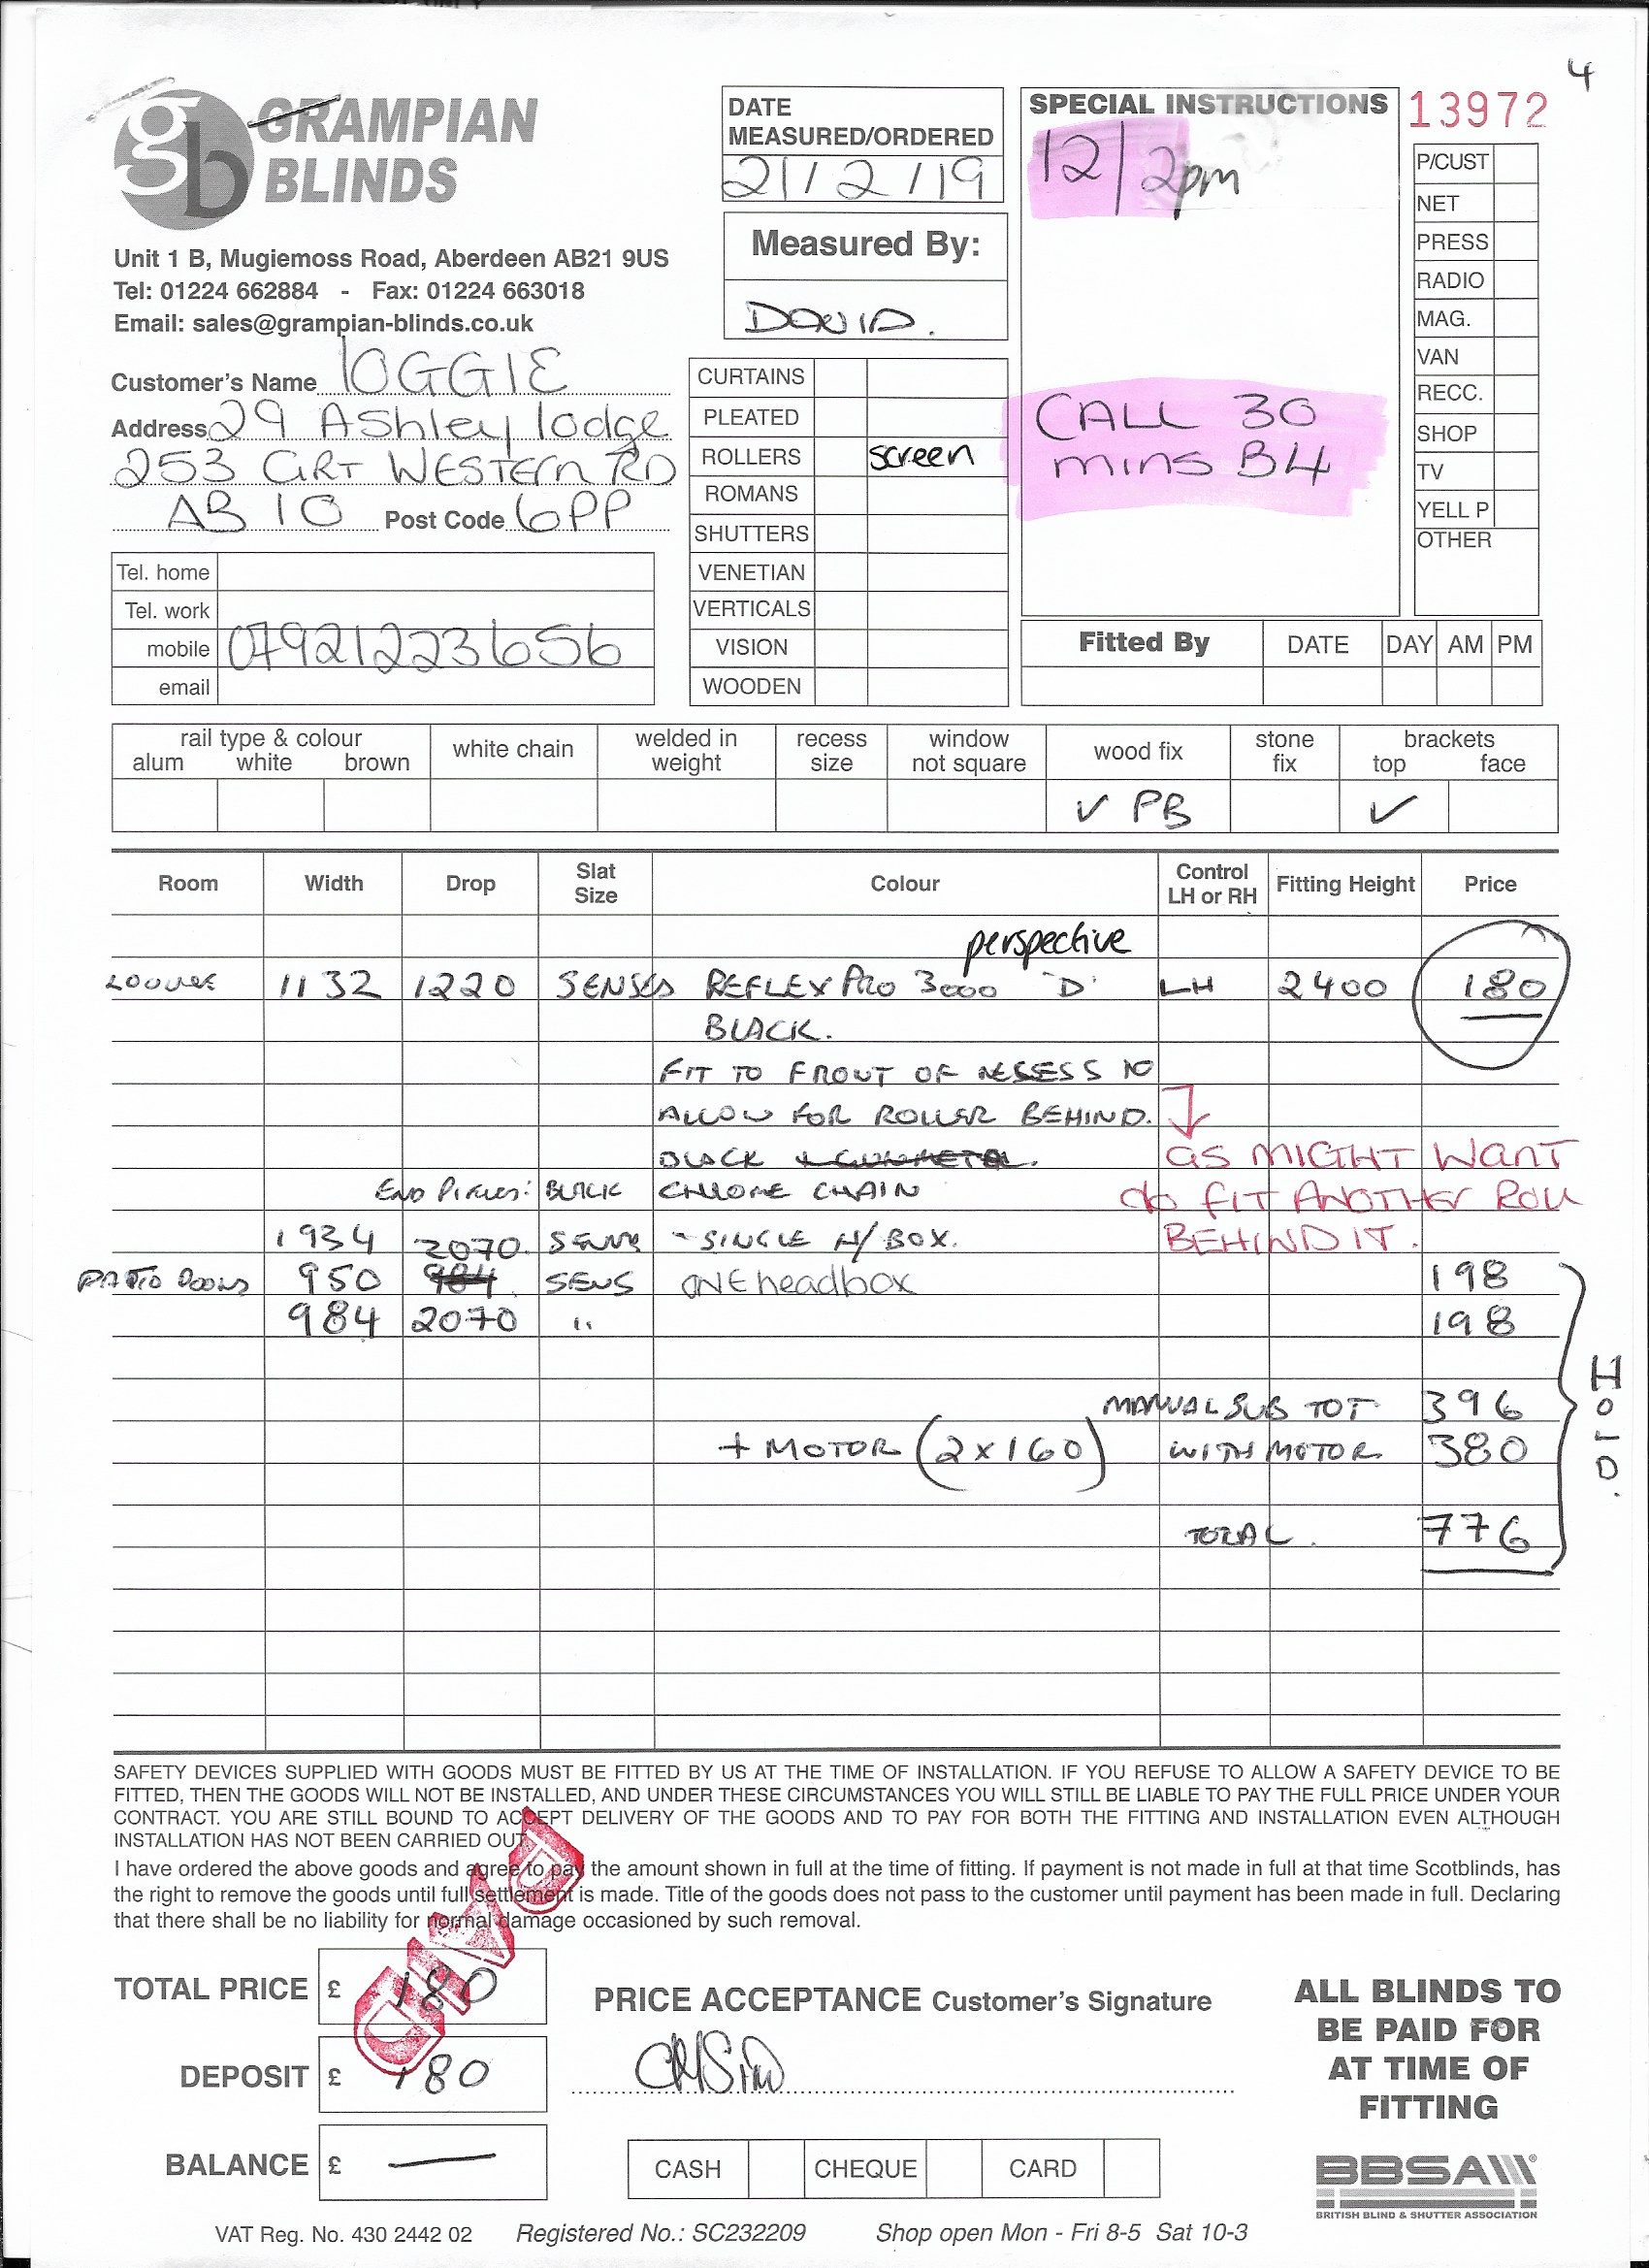 4
GRAMPIAN
BLINDS
gb
Unit 1 B, Mugiemoss Road, Aberdeen AB21 9US
Tel: 01224 662884 - Fax: 01224 663018
Email: sales@grampian-blinds.co.uk
DATE
MEASURED/ORDERED
21/2/19
Measured By:
DAVID.
SPECIAL INSTRUCTIONS
12/2pm
CALL 30
mins B4
13972
P/CUST
NET
PRESS
RADIO
MAG.
VAN
RECC.
SHOP
TV
YELL P
OTHER
Customer's Name OGGIE
Address 29 Ashley lodge
253 GRT WESTERN RD
AB10 Post Code 6PP
Tel. home
Tel. work
mobile 07921223656
email
CURTAINS
PLEATED
ROLLERS screen
ROMANS
SHUTTERS
VENETIAN
VERTICALS
VISION
WOODEN
Fitted By DATE DAY AM PM
rail type & colour white chain welded in weight recess size window not square wood fix stone fix brackets
alum white brown top face
✓ PB ✓
Room Width Drop Slat Size Colour Control LH or RH Fitting Height Price
perspective
1132 1220 SENSES REFLEX PRO 3000 'D' LH 2400 180
BLACK.
FIT TO FRONT OF RESESS TO
ALLOW FOR ROLLER BEHIND.
BLACK + GUNMETAL.
as MIGHT WANT
END PIECES: BLACK CHROME CHAIN
do FIT ANOTHER ROLL
BEHIND IT.
1934 2070 SENS - SINGLE H/BOX.
PATIO DOORS 950 984 SENS ONE headbox 198
984 2070 " 198
MANUAL SUB TOT 396
+ MOTOR (2 x 160) WITH MOTOR 380
TOTAL. 776
HOLD.
SAFETY DEVICES SUPPLIED WITH GOODS MUST BE FITTED BY US AT THE TIME OF INSTALLATION. IF YOU REFUSE TO ALLOW A SAFETY DEVICE TO BE
FITTED, THEN THE GOODS WILL NOT BE INSTALLED, AND UNDER THESE CIRCUMSTANCES YOU WILL STILL BE LIABLE TO PAY THE FULL PRICE UNDER YOUR
CONTRACT. YOU ARE STILL BOUND TO ACCEPT DELIVERY OF THE GOODS AND TO PAY FOR BOTH THE FITTING AND INSTALLATION EVEN ALTHOUGH
INSTALLATION HAS NOT BEEN CARRIED OUT.
I have ordered the above goods and agree to pay the amount shown in full at the time of fitting. If payment is not made in full at that time Scotblinds, has
the right to remove the goods until full settlement is made. Title of the goods does not pass to the customer until payment has been made in full. Declaring
that there shall be no liability for normal damage occasioned by such removal.
PAID
TOTAL PRICE £ 180
DEPOSIT £ 180
BALANCE £ —
PRICE ACCEPTANCE Customer's Signature
CASH CHEQUE CARD
ALL BLINDS TO
BE PAID FOR
AT TIME OF
FITTING
BBSA
BRITISH BLIND & SHUTTER ASSOCIATION
VAT Reg. No. 430 2442 02 Registered No.: SC232209 Shop open Mon - Fri 8-5 Sat 10-3